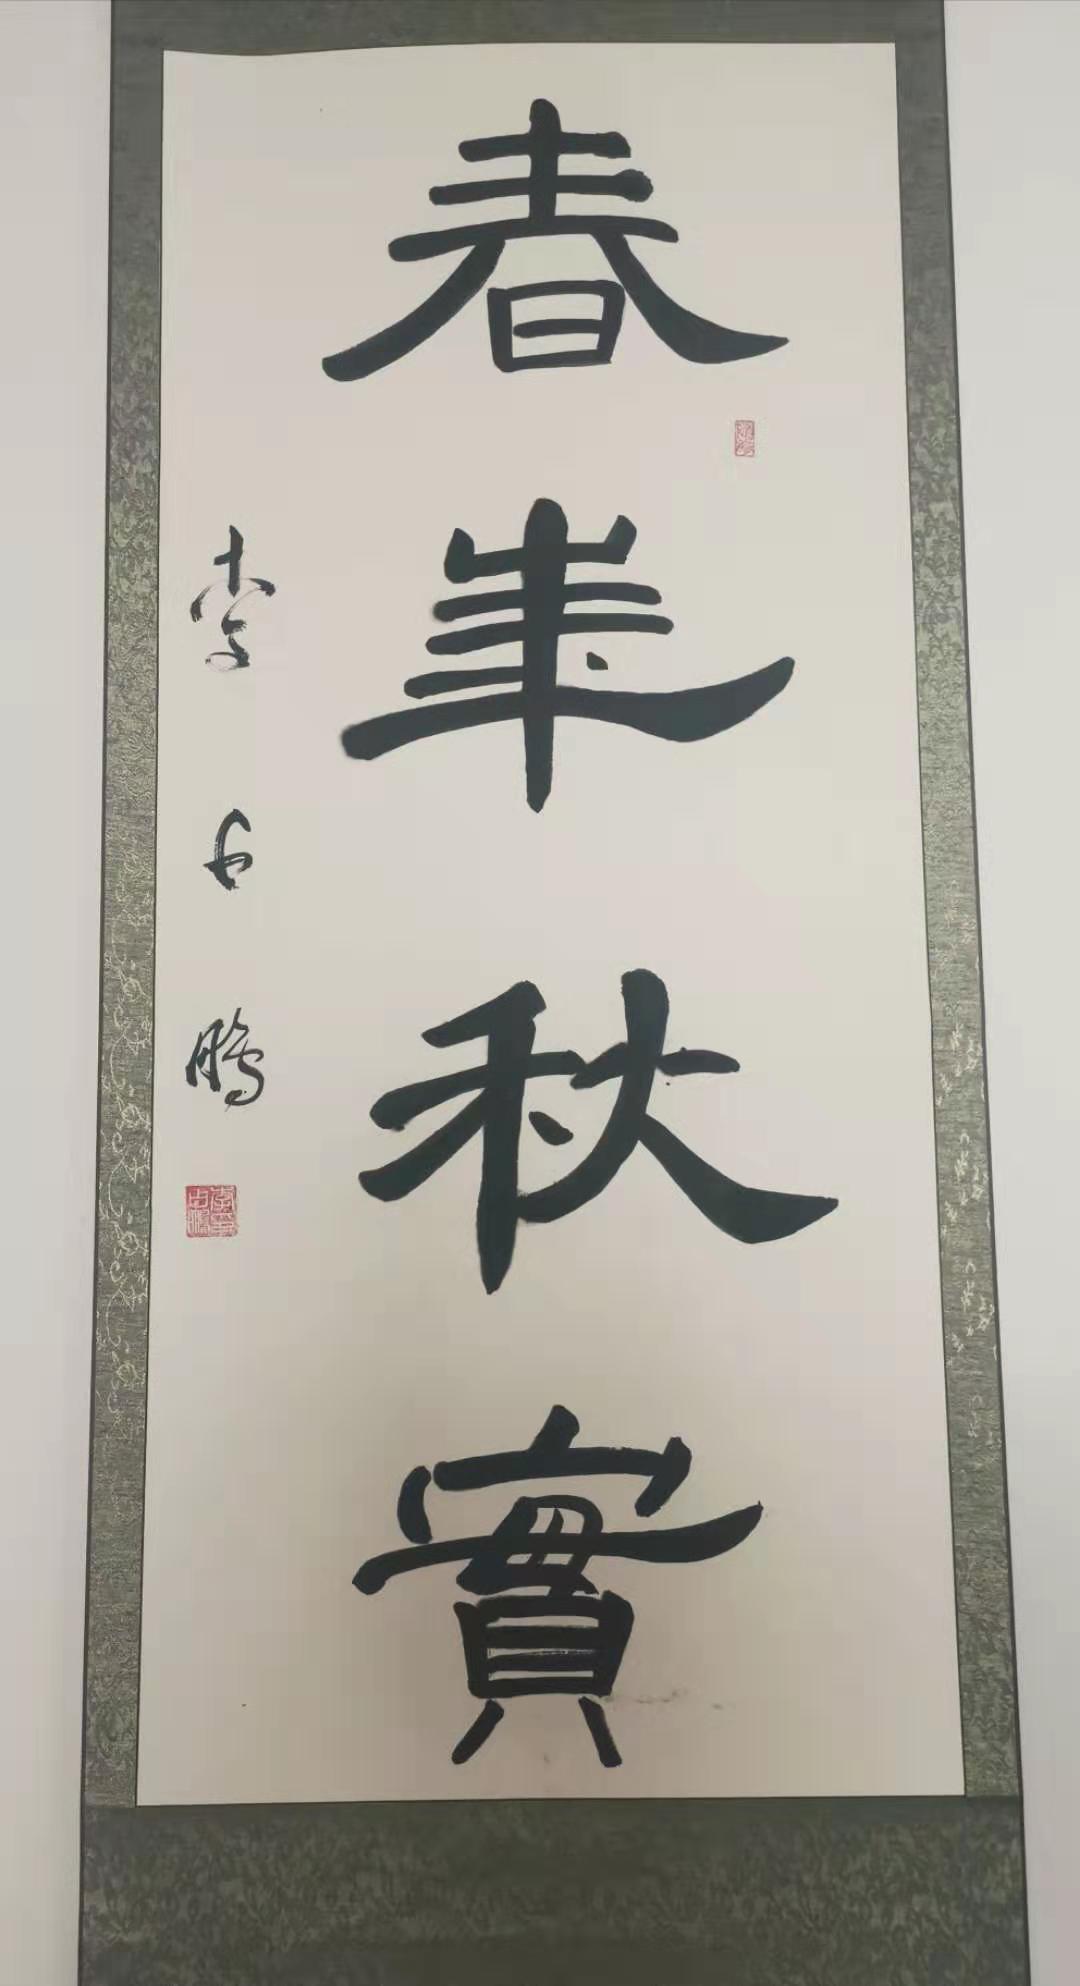 春華秋實
李占鵬